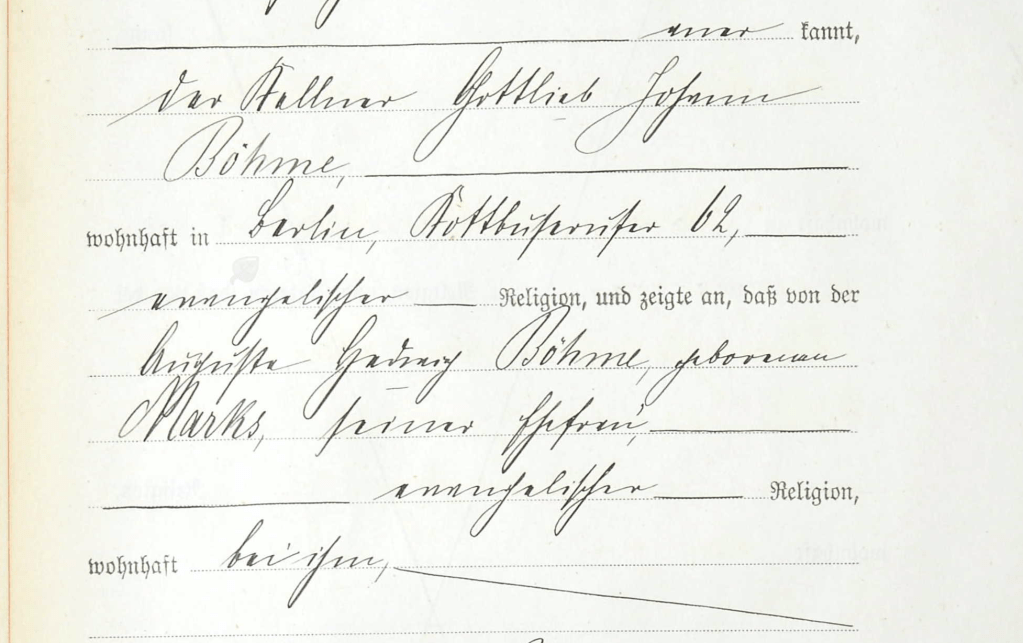 aner kannt,
der Kellner Gottlieb Johann
Böhme,
wohnhaft in Berlin, Kottbuserufer 62,
evangelischer Religion, und zeigte an, daß von der
Auguste Hedwig Böhme, geborenen
Marks, seiner Ehefrau,
evangelischer Religion,
wohnhaft bei ihm,